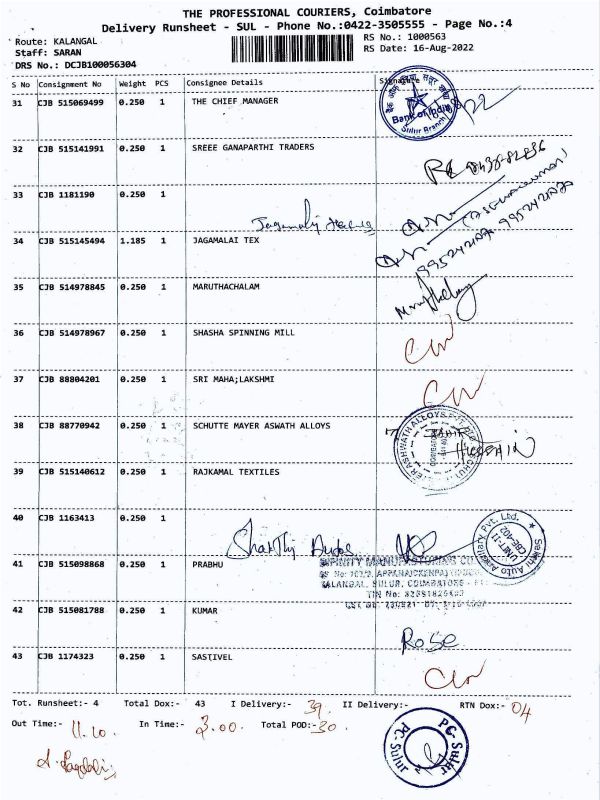 THE PROFESSIONAL COURIERS, Coimbatore
Delivery Runsheet - SUL - Phone No.:0422-3505555 - Page No.:4
Route: KALANGAL
RS No.: 1000563
Staff: SARAN
RS Date: 16-Aug-2022
DRS No.: DCJB100056304
S No Consignment No Weight PCS Consignee Details Signature
31 CJB 515069499 0.250 1 THE CHIEF MANAGER
Bank of India
Sulur Branch
32 CJB 515141991 0.250 1 SREEE GANAPARTHI TRADERS
33 CJB 1181190 0.250 1
34 CJB 515145494 1.185 1 JAGAMALAI TEX
9952421270
35 CJB 514978845 0.250 1 MARUTHACHALAM
36 CJB 514978967 0.250 1 SHASHA SPINNING MILL
37 CJB 88804201 0.250 1 SRI MAHA;LAKSHMI
38 CJB 88770942 0.250 1 SCHUTTE MAYER ASWATH ALLOYS
39 CJB 515140612 0.250 1 RAJKAMAL TEXTILES
40 CJB 1163413 0.250 1
41 CJB 515098868 0.250 1 PRABHU
42 CJB 515081788 0.250 1 KUMAR
Rose
43 CJB 1174323 0.250 1 SASTIVEL
Tot. Runsheet:- 4 Total Dox:- 43 I Delivery:- 39 II Delivery:- RTN Dox:- 04
Out Time:- 11.10 In Time:- 3.00 Total POD:- 30
PC-Sulur
PC-Sulur